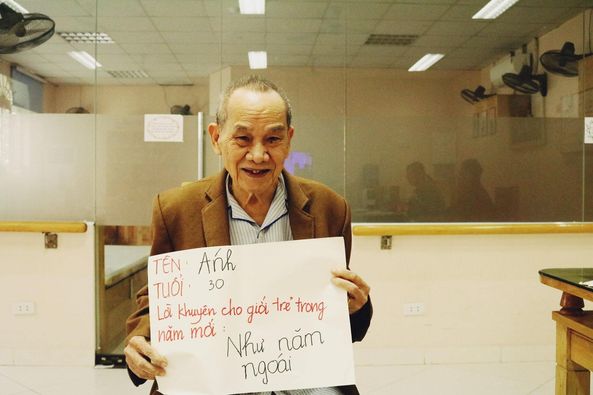 TÊN: Ánh
TUỔI: 30
Lời khuyên cho giới trẻ trong
năm mới:
Như năm
ngoái